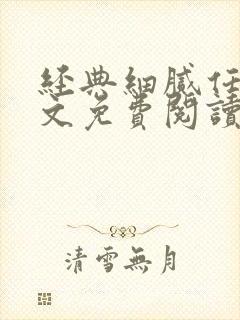 經典細膩任
文免費閱讀
清雪無月